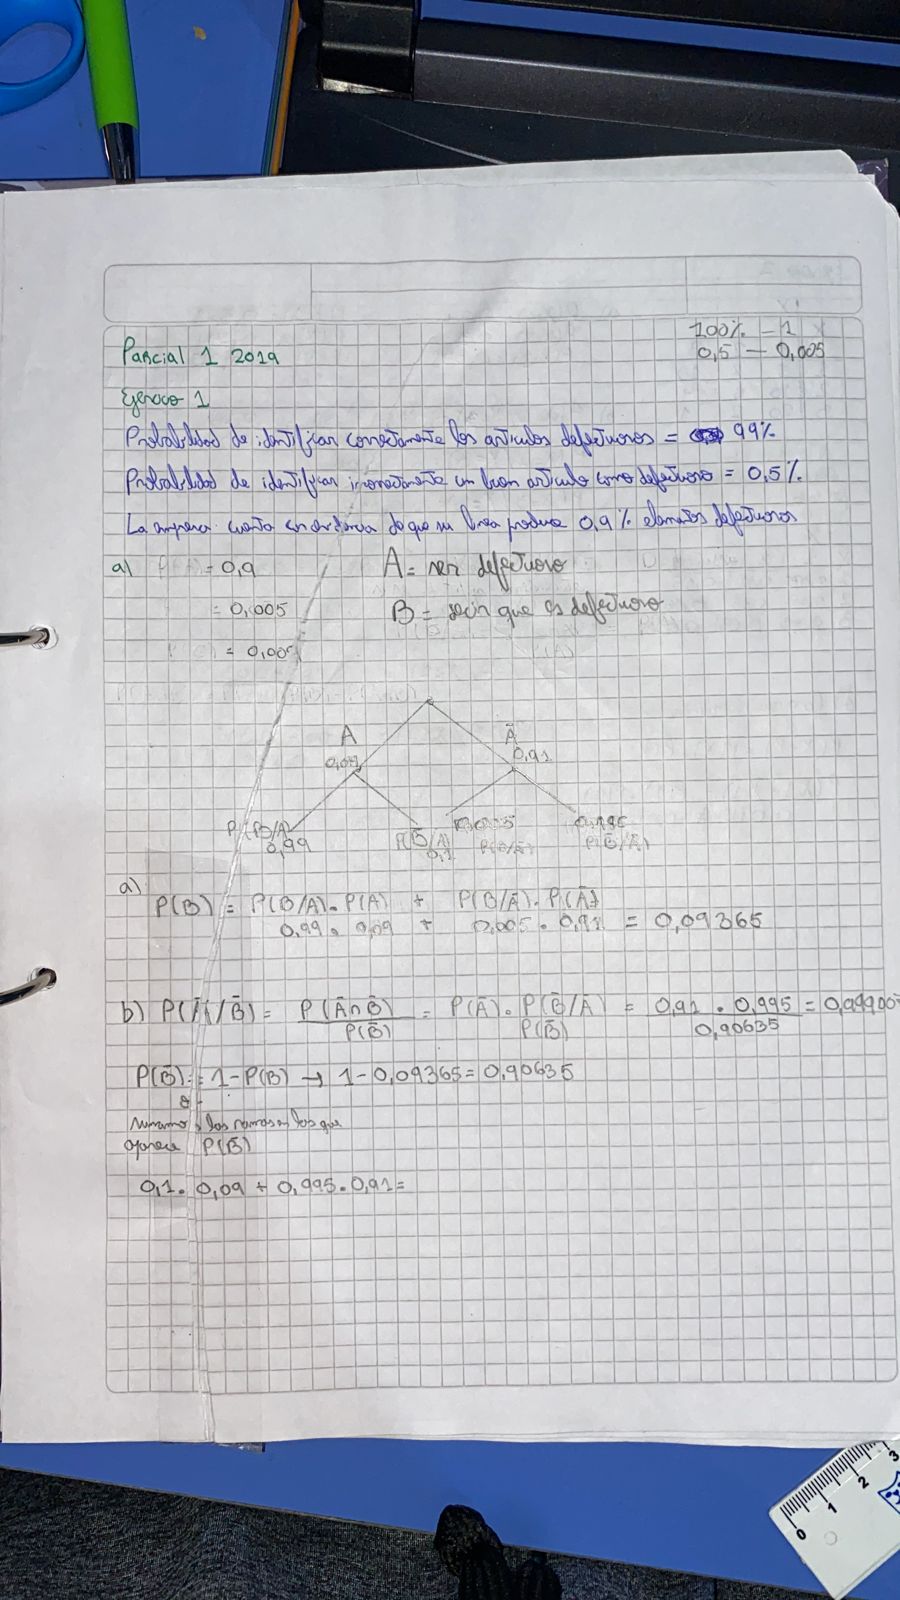 100% - 1
0,5 - 0,005
Parcial 1 2019
Ejercicio 1
Probabilidad de identificar correctamente los articulos defectuosos = 99%
Probabilidad de identificar incorrectamente un buen articulo como defectuoso = 0,5%
La empresa cuenta con evidencia de que su linea produce 0,9% elementos defectuosos
a) = 0,9 A = ser defectuoso
= 0,005 B = decir que es defectuoso
= 0,005
A Ā
0,09 0,91
P(B/A) P(B̄/A) 0,005 0,995
0,99 0,1 P(B/Ā) P(B̄/Ā)
a)
P(B) = P(B/A) . P(A) + P(B/Ā) . P(Ā)
0,99 . 0,09 + 0,005 . 0,91 = 0,09365
b) P(Ā/B̄) = P(Ā∩B̄) / P(B̄) = P(Ā) . P(B̄/Ā) / P(B̄) = 0,91 . 0,995 / 0,90635 =
P(B̄) = 1 - P(B) → 1 - 0,09365 = 0,90635
sumamos las ramas en las que
aparece P(B̄)
0,1 . 0,09 + 0,995 . 0,91 =
0 1 2 3